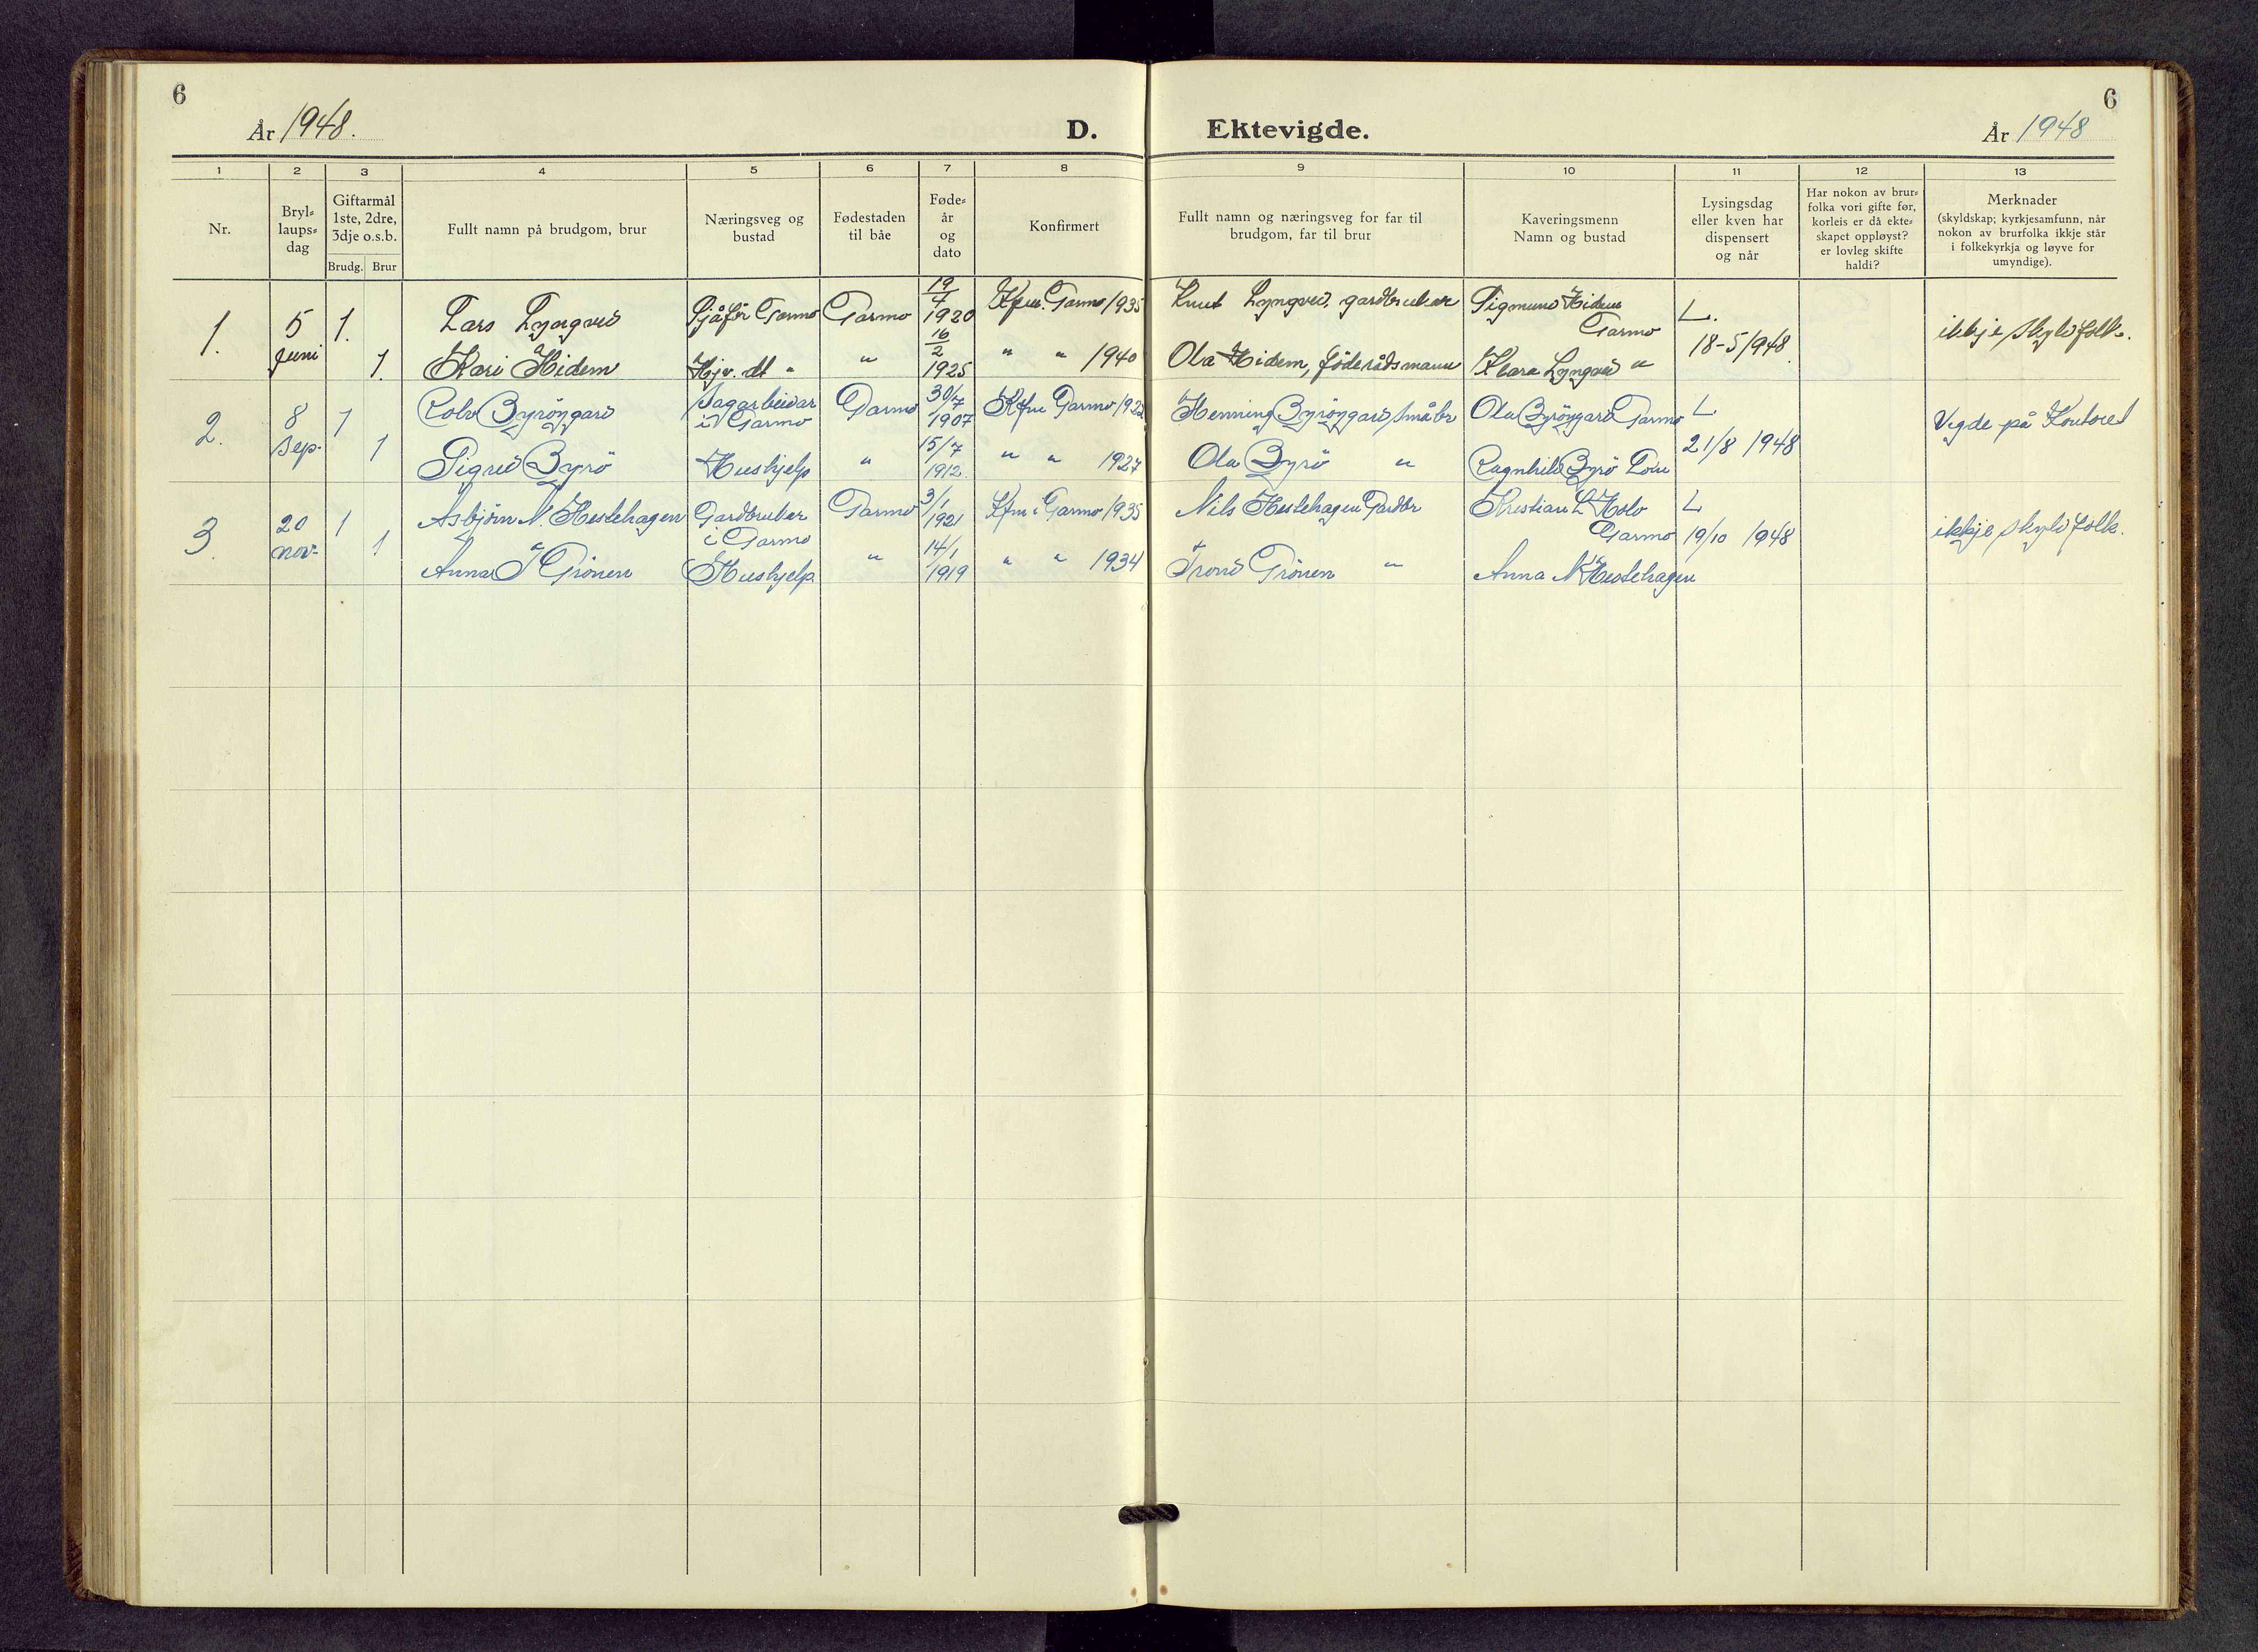 6
År 1948.
D.
Ektevigde.
6
År 1948
1 2 3 4 5 6 7 8 9 10 11 12 13
Nr.
Bryl=
laups=
dag
Giftarmål
1ste, 2dre,
3dje o.s.b.
Brudg. Brur
Fullt namn på brudgom, brur
Næringsveg og
bustad
Fødestaden
til båe
Føde=
år
og
dato
Konfirmert
Fullt namn og næringsveg for far til
brudgom, far til brur
Kaveringsmenn
Namn og bustad
Lysingsdag
eller kven har
dispensert
og når
Har nokon av brur=
folka vori gifte før,
korleis er då ekte=
skapet oppløyst?
er lovleg skifte
haldi?
Merknader
(skyldskap; kyrkjesamfunn, når
nokon av brurfolka ikkje står
i folkekyrkja og løyve for
umyndige).
1.
5
juni
1.
1.
Lars Lyngved
Kari Hidem
Sjåfør Garmo
Hjv. dt "
Garmo
"
19
4
1920
16
2
1925
Kfm. Garmo 1935
" " 1940
Knut Lyngved, gardbrukar
Ola Hidem, føderådsmann
Sigmund Hidem
Garmo
Klara Lyngved "
L.
18-5 1948.
ikkje skyldfolk.
2.
8
sep.
1
1
Rolv Byröygard
Sigrid Byrö
Sagarbeidar
i Garmo
Hushjelp
Garmo
"
30/7
1907
15/7
1912.
Kfm Garmo 1922
" " 1927
Henning Byröygard, småbr
Ola Byrö "
Ola Byröygard Garmo
Ragnhild Byrö
L
21/8 1948
Vigde på Kontoret
3.
20
nov.
1
1
Asbjörn N. Hestehagen
Anna T Grönen
Gardbrukar
i Garmo
Hushjelp
Garmo
"
3/1
1921
14/1
1919
Kfm i Garmo 1935
" " 1934
Nils Hestehagen Gardbr
Trond Grönen "
Kristian L Holö
Garmo
Anna N Hestehagen
L
19/10 1948
ikkje skyldfolk.